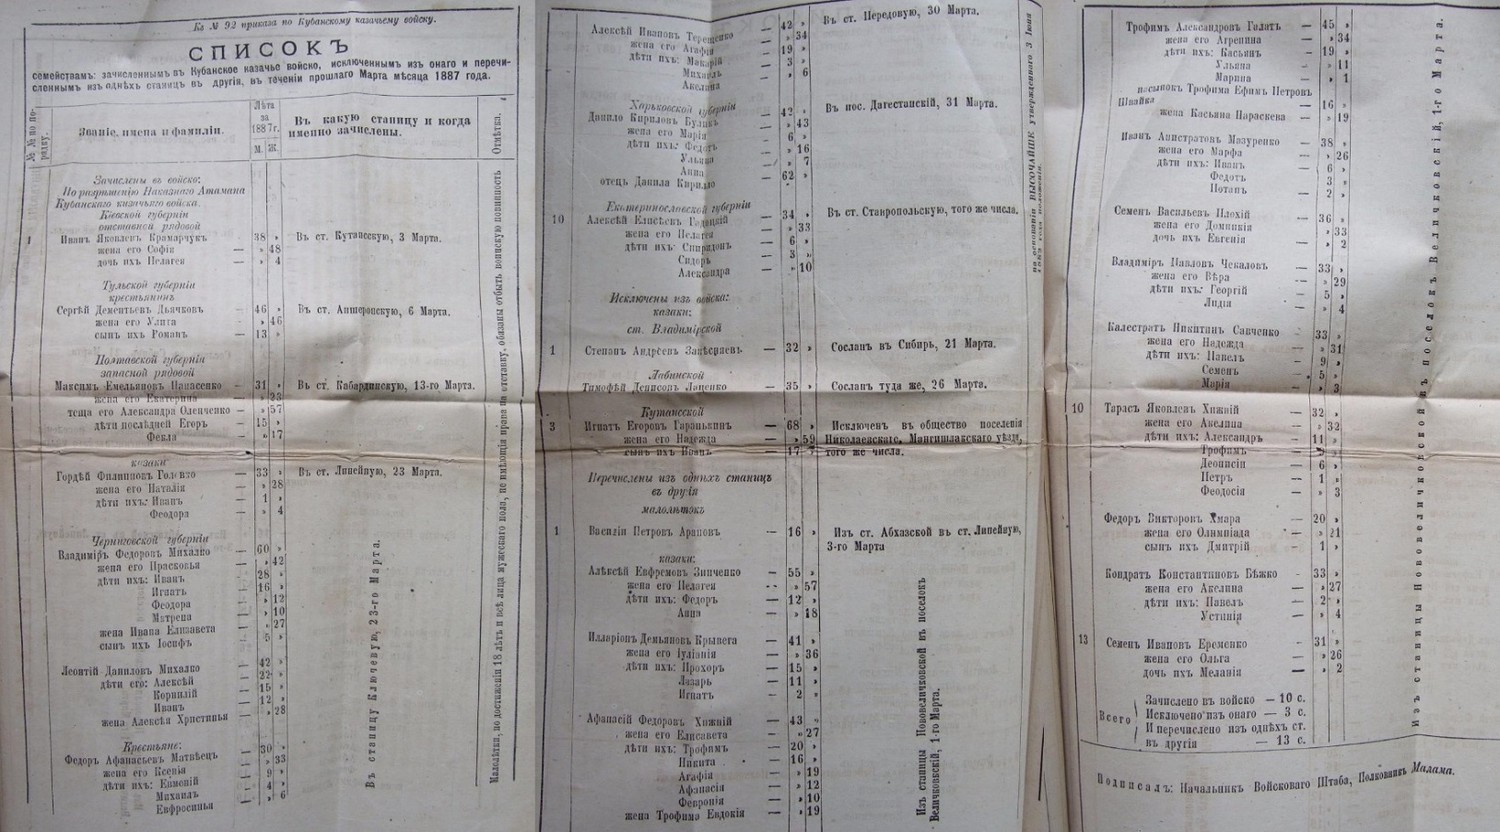 Къ № 92 приказа по Кубанскому казачьему войску.
СПИСОКЪ
семействамъ: зачисленнымъ въ Кубанское казачье войско, исключеннымъ изъ онаго и перечи-
сленнымъ изъ однѣхъ станицъ въ другія, въ теченіи прошлаго Марта мѣсяца 1887 года.
№ № по по-
рядку.
Званіе, имена и фамиліи.
Лѣта
за
1887г.
М. Ж.
Въ какую станицу и когда
именно зачислены.
Отмѣтка.
Зачислены въ войско:
По разрѣшенію Наказнаго Атамана
Кубанскаго казачьяго войска.
Кіевской губерніи
отставной рядовой
1 Иванъ Яковлевъ Крамарчукъ 38 » Въ ст. Кутаисскую, 3 Марта.
жена его Софія — » 48
дочь ихъ Пелагея — » 4
Тульской губерніи
крестьянинъ
Сергѣй Дементьевъ Дьячковъ 46 » Въ ст. Апшеронскую, 6 Марта.
жена его Улита » 46
сынъ ихъ Романъ — 13 »
Полтавской губерніи
запасной рядовой
Максимъ Емельяновъ Панасенко — 31 » Въ ст. Кабардинскую, 13-го Марта.
жена его Екатерина — » 23
теща его Александра Оленченко — » 57
дѣти послѣдней Егоръ — 15 »
Фекла — » 17
козаки
Гордѣй Филипповъ Головко — 33 » Въ ст. Линейную, 23 Марта.
жена его Наталія — » 28
дѣти ихъ: Иванъ — 1 »
Феодора — » 4
Черниговской губерніи
Владиміръ Федоровъ Михалко — 60 »
жена его Прасковья — » 42
дѣти ихъ: Иванъ — 28 »
Игнатъ — 16 »
Феодора — » 12
Матрена — » 10
жена Ивана Елизавета — » 27
сынъ ихъ Іосифъ — 5 »
Леонтій Даниловъ Михалко — 42 »
дѣти его: Алексѣй — 22 »
Корнилій — 15 »
Иванъ — 12 »
жена Алексѣя Христинья — » 28
Крестьяне:
Федоръ Афанасьевъ Матвѣецъ — 30 »
жена его Ксенія — » 33
дѣти ихъ: Евменій — 9 »
Михаилъ — 4 »
Евфросинья — » 6
Въ станицу Ключевую, 23-го Марта.
Малолѣтки, по достиженіи 18 лѣтъ и всѣ лица мужескаго пола, не имѣющія права на отставку, обязаны отбыть воинскую повинность
на основаніи ВЫСОЧАЙШЕ утвержденнаго 3 Іюня
Алексѣй Ивановъ Терещенко — 42 » Въ ст. Передовую, 30 Марта.
жена его Агафія — » 34
дѣти ихъ: Макарій — 19 »
Михаилъ — 3 »
Акелина — » 6
Харьковской губерніи
Данило Кириловъ Буликъ — 42 » Въ пос. Дагестанскій, 31 Марта.
жена его Марія — » 43
дѣти ихъ: Федотъ — 6 »
Ульяна — » 16
Анна — » 7
отецъ Данила Кирилло — 62 »
Екатеринославской губерніи
10 Алексѣй Елисѣевъ — 34 » Въ ст. Ставропольскую, того же числа.
жена его Пелагея — » 33
дѣти ихъ: Спиридонъ — 6 »
Сидоръ — 3 »
Александра — » 10
Исключены изъ войска:
казаки:
ст. Владимірской
1 Степанъ Андреевъ — 32 » Сосланъ въ Сибирь, 21 Марта.
Лабинской
Тимофѣй Денисовъ Лаценко — 35 » Сосланъ туда же, 26 Марта.
Кутаисской
3 Игнатъ Егоровъ Гаранькинъ — 68 » Исключенъ въ общество поселенія
жена его Надежда — » 59 Николаевскаго, Мангишлакскаго уѣзда,
сынъ ихъ Иванъ — 17 » того же числа.
Перечислены изъ однихъ станицъ
въ другія
малолѣтокъ
1 Василій Петровъ Араповъ — 16 » Изъ ст. Абхазской въ ст. Линейную,
3-го Марта
казаки:
Алексѣй Евфремовъ Зинченко — 55 »
жена его Пелагея » 57
дѣти ихъ: Федоръ — 12 »
Анна — » 18
Илларіонъ Демьяновъ Крывега — 41 »
жена его Іуліанія — » 36
дѣти ихъ: Прохоръ — 15 »
Лазарь — 11 »
Игнатъ — 2 »
Афанасій Федоровъ Хижній — 43 »
жена его Елисавета — » 27
дѣти ихъ: Трофимъ — 20 »
Никита — 16 »
Агафія — » 19
Афанасія — » 12
Февронія — » 10
жена Трофима Евдокія — » 19
Изъ станицы Нововеличковской въ поселокъ
Величковскій, 1-го Марта.
Трофимъ Александровъ Галатъ — 45 »
жена его Агрепина — » 34
дѣти ихъ: Касьянъ — 19 »
Ульяна — » 11
Марина — » 1
пасынокъ Трофима Ефимъ Петровъ
Швайка — 16 »
жена Касьяна Параскева — » 19
Иванъ Анистратовъ Мазуренко — 38 »
жена его Марфа — » 26
дѣти ихъ: Иванъ — 6 »
Федотъ — 3 »
Потапъ — 2 »
Семенъ Васильевъ Плохій — 36 »
жена его Домникія — » 33
дочь ихъ Евгенія — » 2
Владиміръ Павловъ Чекаловъ — 33 »
жена его Вѣра — » 29
дѣти ихъ: Георгій — 5 »
Лидія — » 4
Калестратъ Никитинъ Савченко — 33 »
жена его Надежда — » 31
дѣти ихъ: Павелъ — 9 »
Семенъ — 5 »
Марія — » 3
10 Тарасъ Яковлевъ Хижній — 32 »
жена его Акелина — » 32
дѣти ихъ: Александръ — 11 »
Трофимъ
Деонисій — 6 »
Петръ — 1 »
Феодосія — » 3
Федоръ Викторовъ Хмара — 20 »
жена его Олимпіада » 21
сынъ ихъ Дмитрій — 1 »
Кондратъ Константиновъ Бѣжко — 33 »
жена его Акелина — » 27
дѣти ихъ: Павелъ — 2 »
Устинія — » 4
13 Семенъ Ивановъ Еременко — 31 »
жена его Ольга — » 26
дочь ихъ Меланія — » 2
Всего
Зачислено въ войско — 10 с.
Исключено изъ онаго — 3 с.
И перечислено изъ однѣхъ ст.
въ другія — 13 с.
Изъ станицы Нововеличковской въ поселокъ Величковскій, 1-го Марта.
Подписалъ: Начальникъ Войсковаго Штаба, Полковникъ Малама.